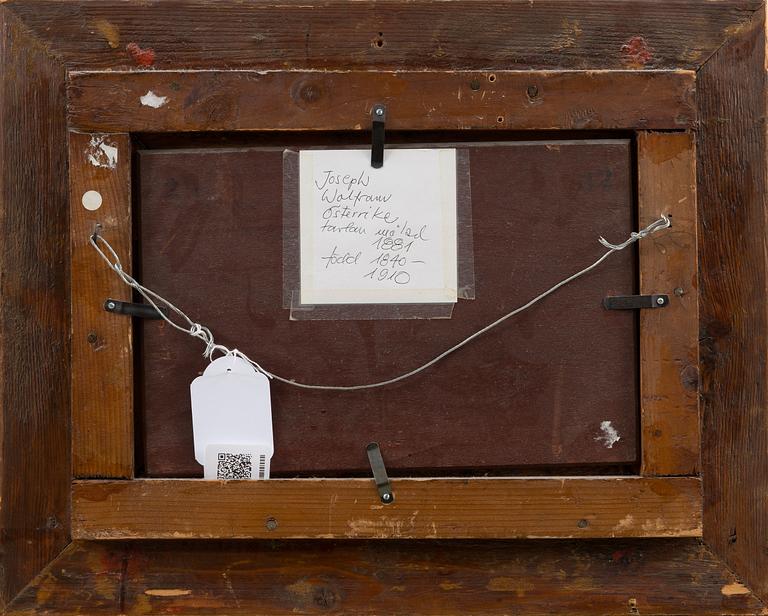 Joseph
Wolfram
Österrike
tavlan målad
1881
född 1840-
1910